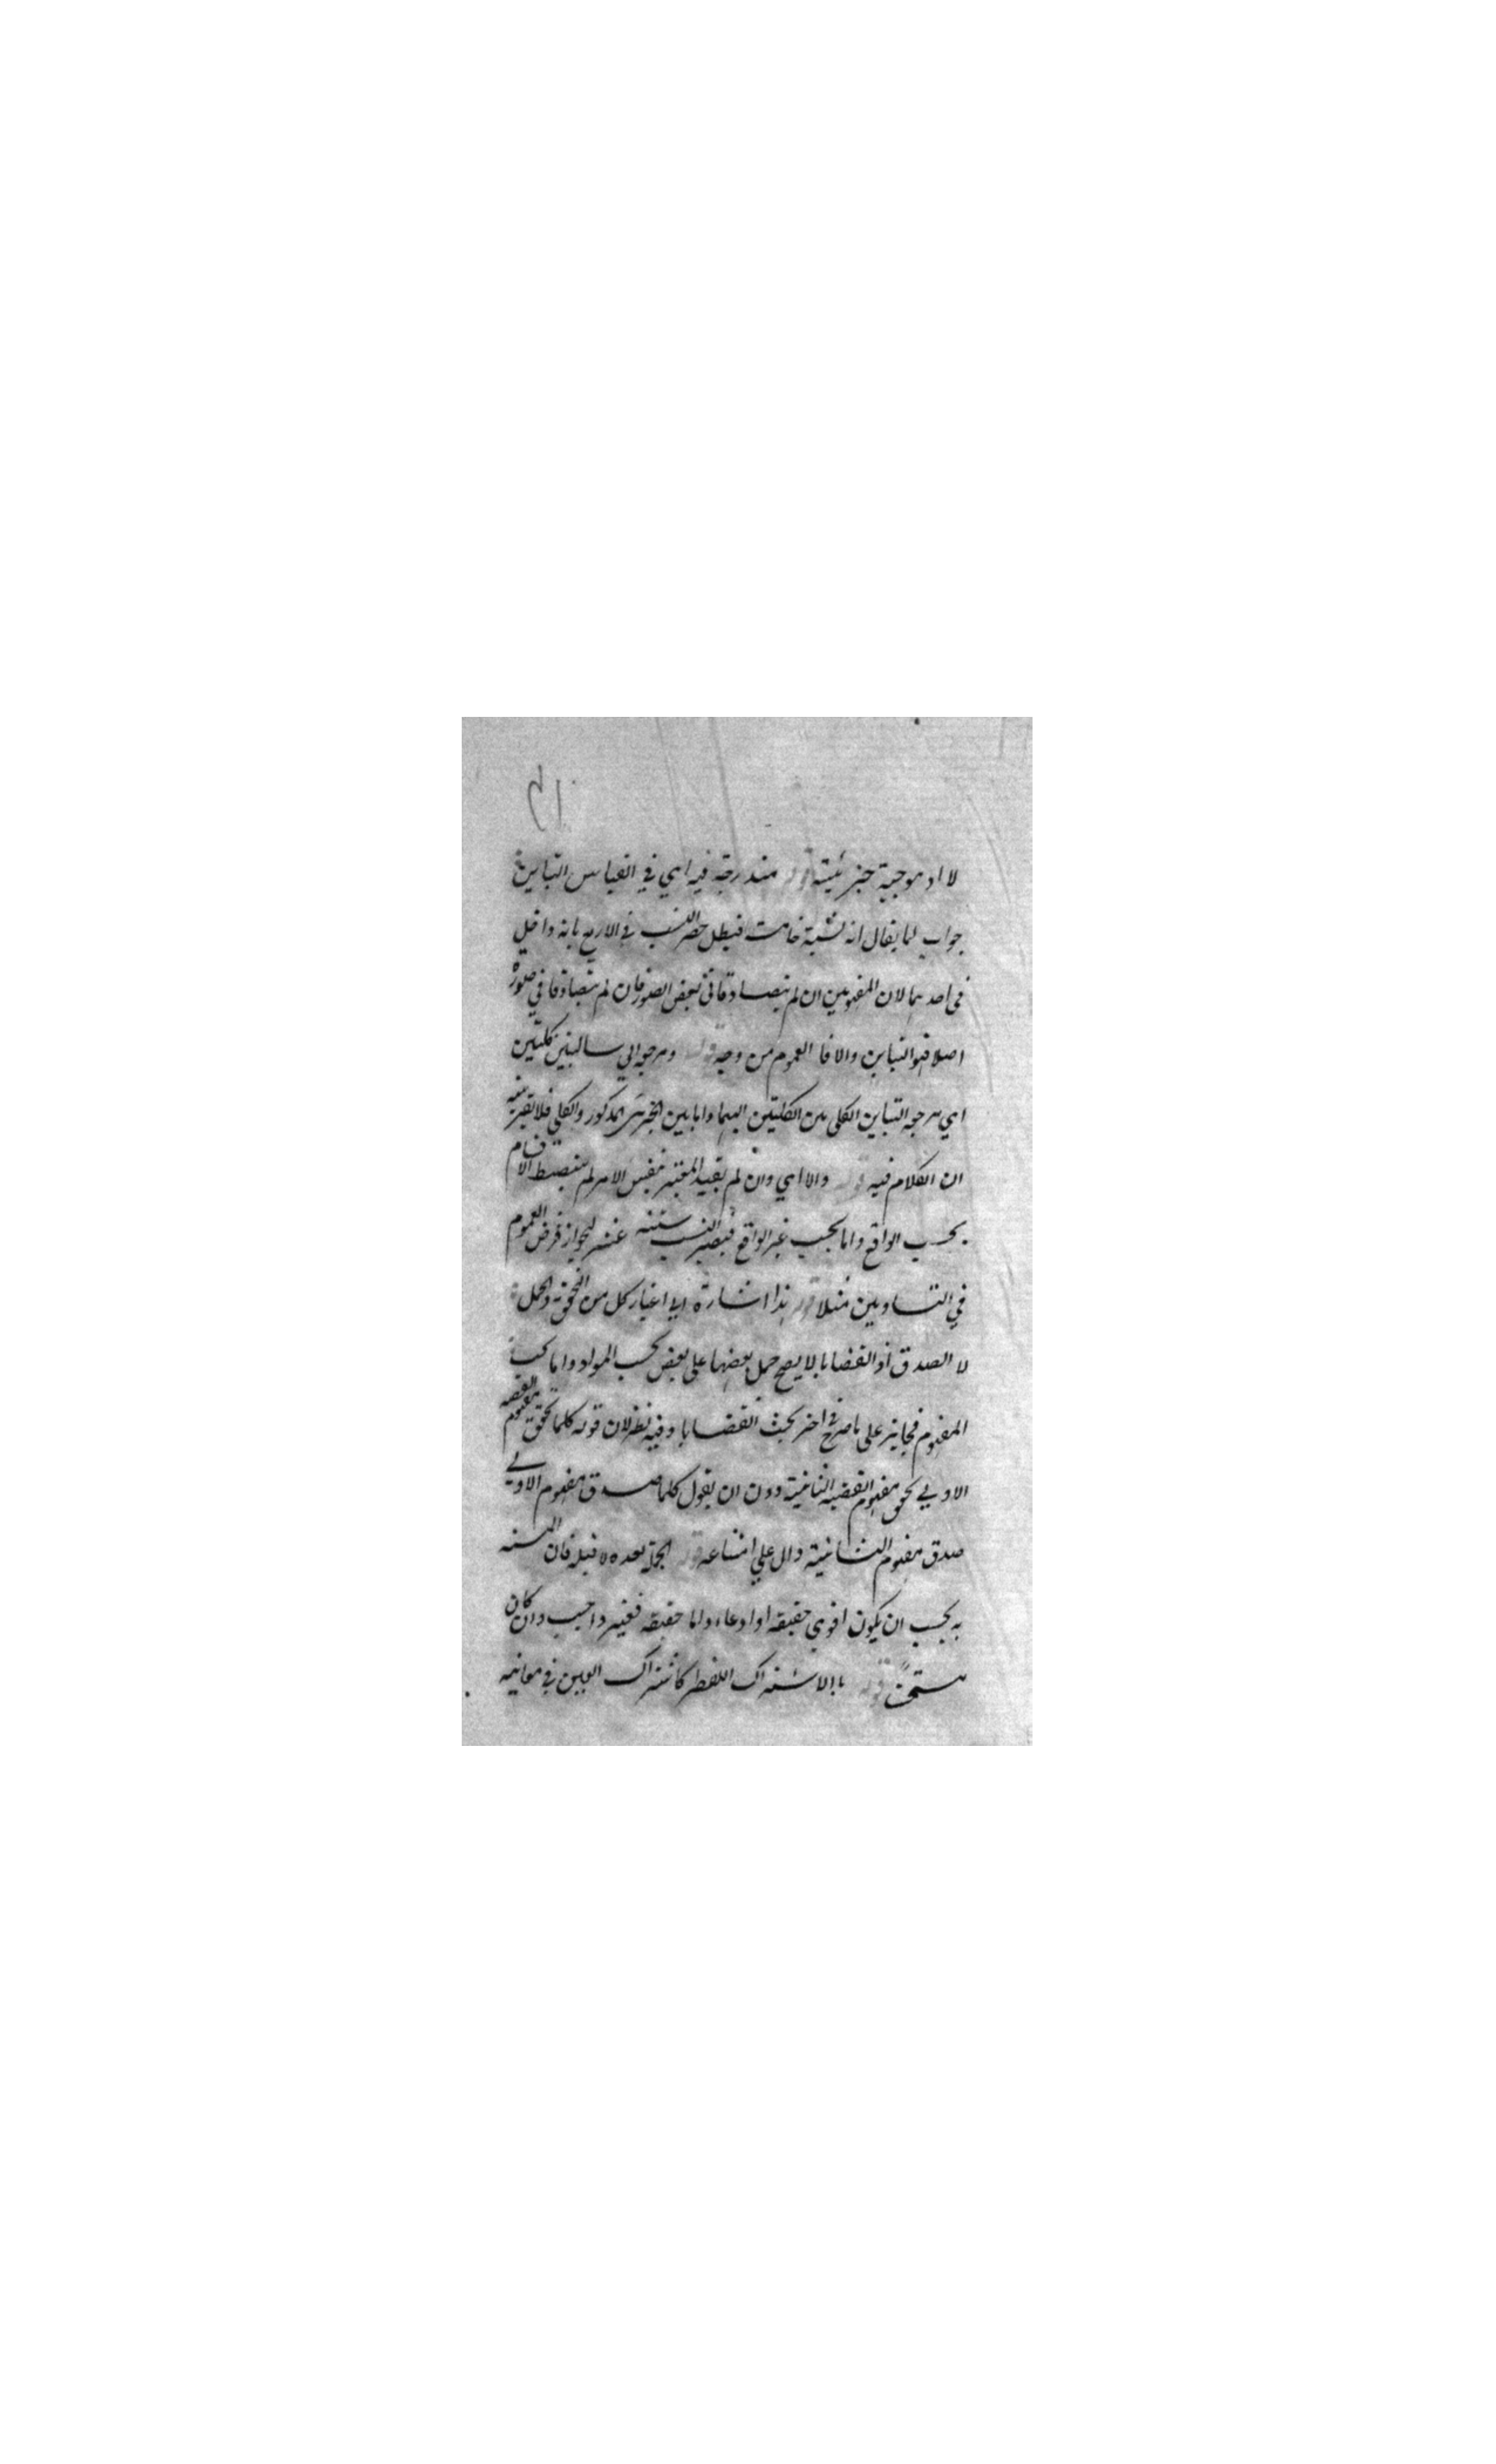 لا او موجبة جزئية قوله مندرجة فيه اي في القياس التباين
جواب لما يقال انه نسبة خامسة فبطل حصر النسب في الاربع بانه داخل
في احدهما لان المفهومين ان لم يتصادقا في بعض الصور فان لم يتصادقا في صورة
اصلا فهو التباين والا فالعموم من وجه قوله ومرجعه الي سالبتين كليتين
اي مرجع التباين الكلي بين الكليتين اليهما واما بين الجزئي المذكور والكلي فلا بقرينة
ان الكلام فيه قوله والا اي وان لم يقيد المعتبر بنفس الامر لم ينضبط الاقسام
بحسب الواقع واما بحسب غير الواقع فيصير النسب ستة عشر لجواز فرض العموم
في المتساويين مثلا قوله هذا اشارة الي اعتبار كل من التحقق والحمل
لا الصدق اذ القضايا لا يصح حمل بعضها علي بعض بحسب المواد واما بحسب
المفهوم فجايز علي ما صرح في اخر بحث القضايا وفيه نظر لان قوله كلما تحقق مفهوم القضية
الاولي تحقق مفهوم القضية الثانية دون ان يقول كلما صدق مفهوم الاولي
صدق مفهوم الثانية دال علي امتناعه قوله الجملة بعده لا قبله فان المشبه
به يجب ان يكون اقوي حقيقة او ادعاء واما حقيقة فغير واجب وان كان
مستحسنا قوله بالاشتراك اللفظي كاشتراك العين في معانيه